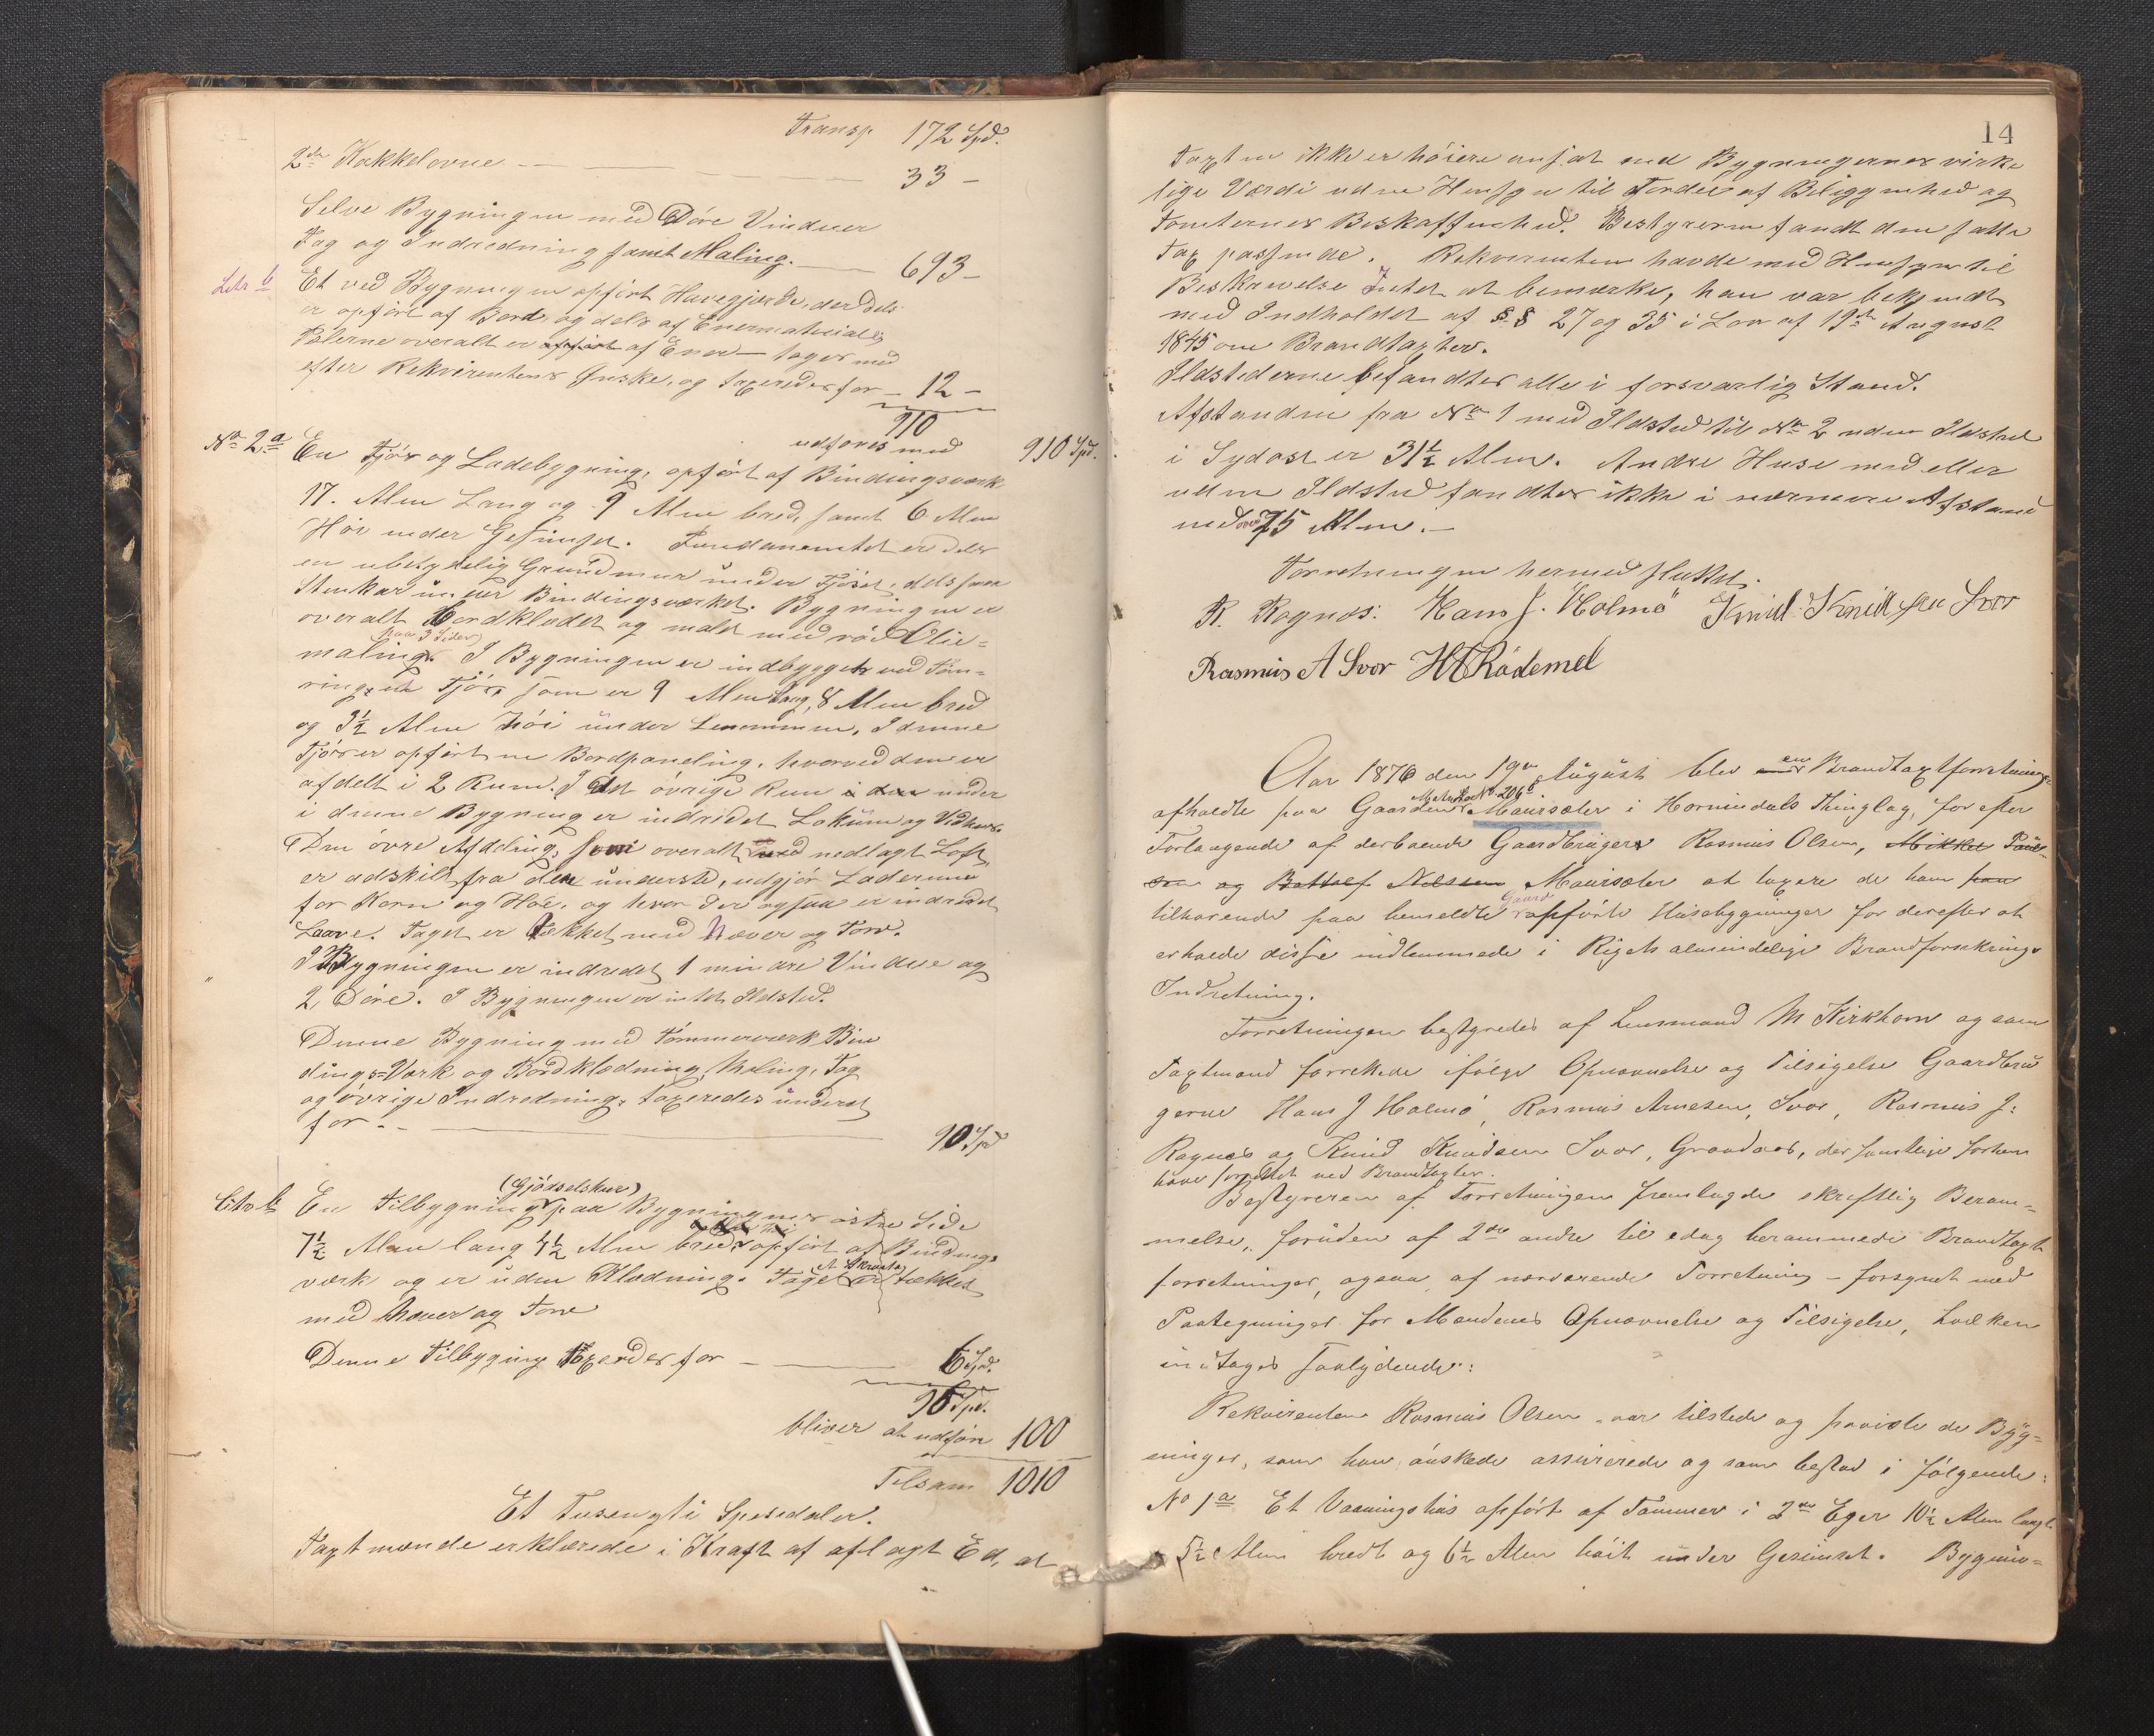 Transp. 172 Spd.
2de Kakkelovne — 33 –
Selve Bygningen med Døre Vinduer
Tag og Indredning samt Maling. — 693 –
Litr b Et ved Bygningen opført Havegjærde, der dels
er opført af Bord og dels af Enermateriale,
Pælerne overalt er opført af Ener – tages med
efter Rekvirentens Ønske, og taxeredes for – 12 –
910
udføres med 910 Spd.
No 2 a En Fjøs og Ladebygning, opført af Bindingsværk
17. Alen Lang og 9 Alen bred, samt 6 Alen
Høi under Gesimset. Fundamentet er dels
en ubetydelig Grundmur under Fjøset, dels paa
Stenkar under Bindingsværket. Bygningen er
overalt bordklædet og malet med rød Olie-
paa 3 Sider
maling. I Bygningen er indbygget ved Tøm-
ring, en Fjøs, som er 9 Alen lang, 8 Alen bred
og 3½ Alen høi under Lemmen, I denne
Fjøs er opført en Bordpaneling, hvorved den er
afdelt i 2 Rum. I det øvrige Rum i den under
i denne Bygning er indredet Lokum og Vedhus.
Den øvre Afdeling, som overalt med nedlagt Loft,
er adskilt fra den underste, udgjør Laderum
for Korn og Høe, og hvor der ogsaa er indredet
Laave. Taget er tækket med Næver og Torv.
I Bygningen er indredet 1 mindre Vindue og
2, Døre. I Bygningen er intet Ildsted.
Denne Bygning med Tømmerværk Bin
dings-Værk og Bordklædning, Maling, Tag
og øvrige Indredning, taxeredes underet
for – 90 Spd
Litr b En Tilbygning (Gjødselskur) paa Bygningens østre Side
7½ Alen lang 4½ Alen bred, opført af Bindings
værk og er uden Klædning. Taget (et Skraatag) er tækket
med Næver og Torv
Denne Tilbygning taxerdes for — 6 Spd.
96 Spd.
bliver at udføre 100
Tilsam 1010
Et Tusengti Speciedaler.
Taxtmændene erklærede i Kraft af aflagt Ed, at
14
Taxten ikke er høiere ansat end Bygningernes virke
lige Værdi uden Hensyn til Fordele af Beliggenhed og
Tomternes Beskaffenhed. Bestyreren fandt den satte
Tax passende. Rekvirenten havde med Hensyn til
Beskrivelse Intet at bemærke, han var bekjendt
med Indholdet af §§ 27 og 35 i Lov af 19de August
1845 om Brandtaxter.
Ildstederne befandtes alle i forsvarlig Stand.
Afstanden fra No 1 med Ildsted til No 2 uden Ildsted
i Sydost er 31½ Alen. Andre Huse med eller
uden Ildsted fandtes ikke i nærmere Afstand
end over 75 Alen. –
Forretningen hermed sluttet.
R. Rognes: Hans J. Holmö Knud Knudsen Svor
Rasmus A Svor H A Rådemel
Aar 1876 den 19de August blev en Brandtaxtforretning
afholdt paa Gaarden Matr. Løbe No 206 Maurseter i Hornindals Thinglag, for efter
Forlangende af derboende Gaardbruger Rasmus Olsen, Mikkel Paul-
sen og Bottolf Nilssen Maurseter at taxere de ham paa
tilhørende paa bemeldte Gaard opførte Husebygninger for derefter at
erholde disse indlemmede i Rigets almindelige Brandforsikrings
Indretning.
Forretningen bestyredes af Lensmand M Kirkhorn og som
Taxtmænd forrettede ifølge Opnævnelse og Tilsigelse Gaardbru
gerne Hans J Holmö, Rasmus Arnesen Svor, Rasmus J:
Rognes og Knud Knudsen Svor, Grodaas, der samtlige forhen
have forrettet ved Brandtaxter.
Bestyreren af Forretningen fremlagde skriftlig Beram-
melse, foruden af 2de andre til idag berammede Brandtaxt
forretninger, ogsaa af nærværende Forretning – forsynet med
Paategninger for Mændenes Opnævnelse og Tilsigelse, hvilken
indtages saalydende:
Rekvirenten Rasmus Olsen var tilstede og paaviste de Byg-
ninger, som han ønskede assurerede og som bestod i følgende:
No 1 a Et Vaaningshus opført af Tømmer i 2de Eger 10½ Alen langt
5½ Alen bredt og 6½ Alen høit under Gesimset. Bygnin-